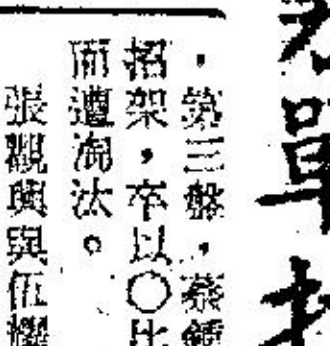 單
，第三盤，蔡
招架，卒以○比
而遭淘汰。
張觀興與伍